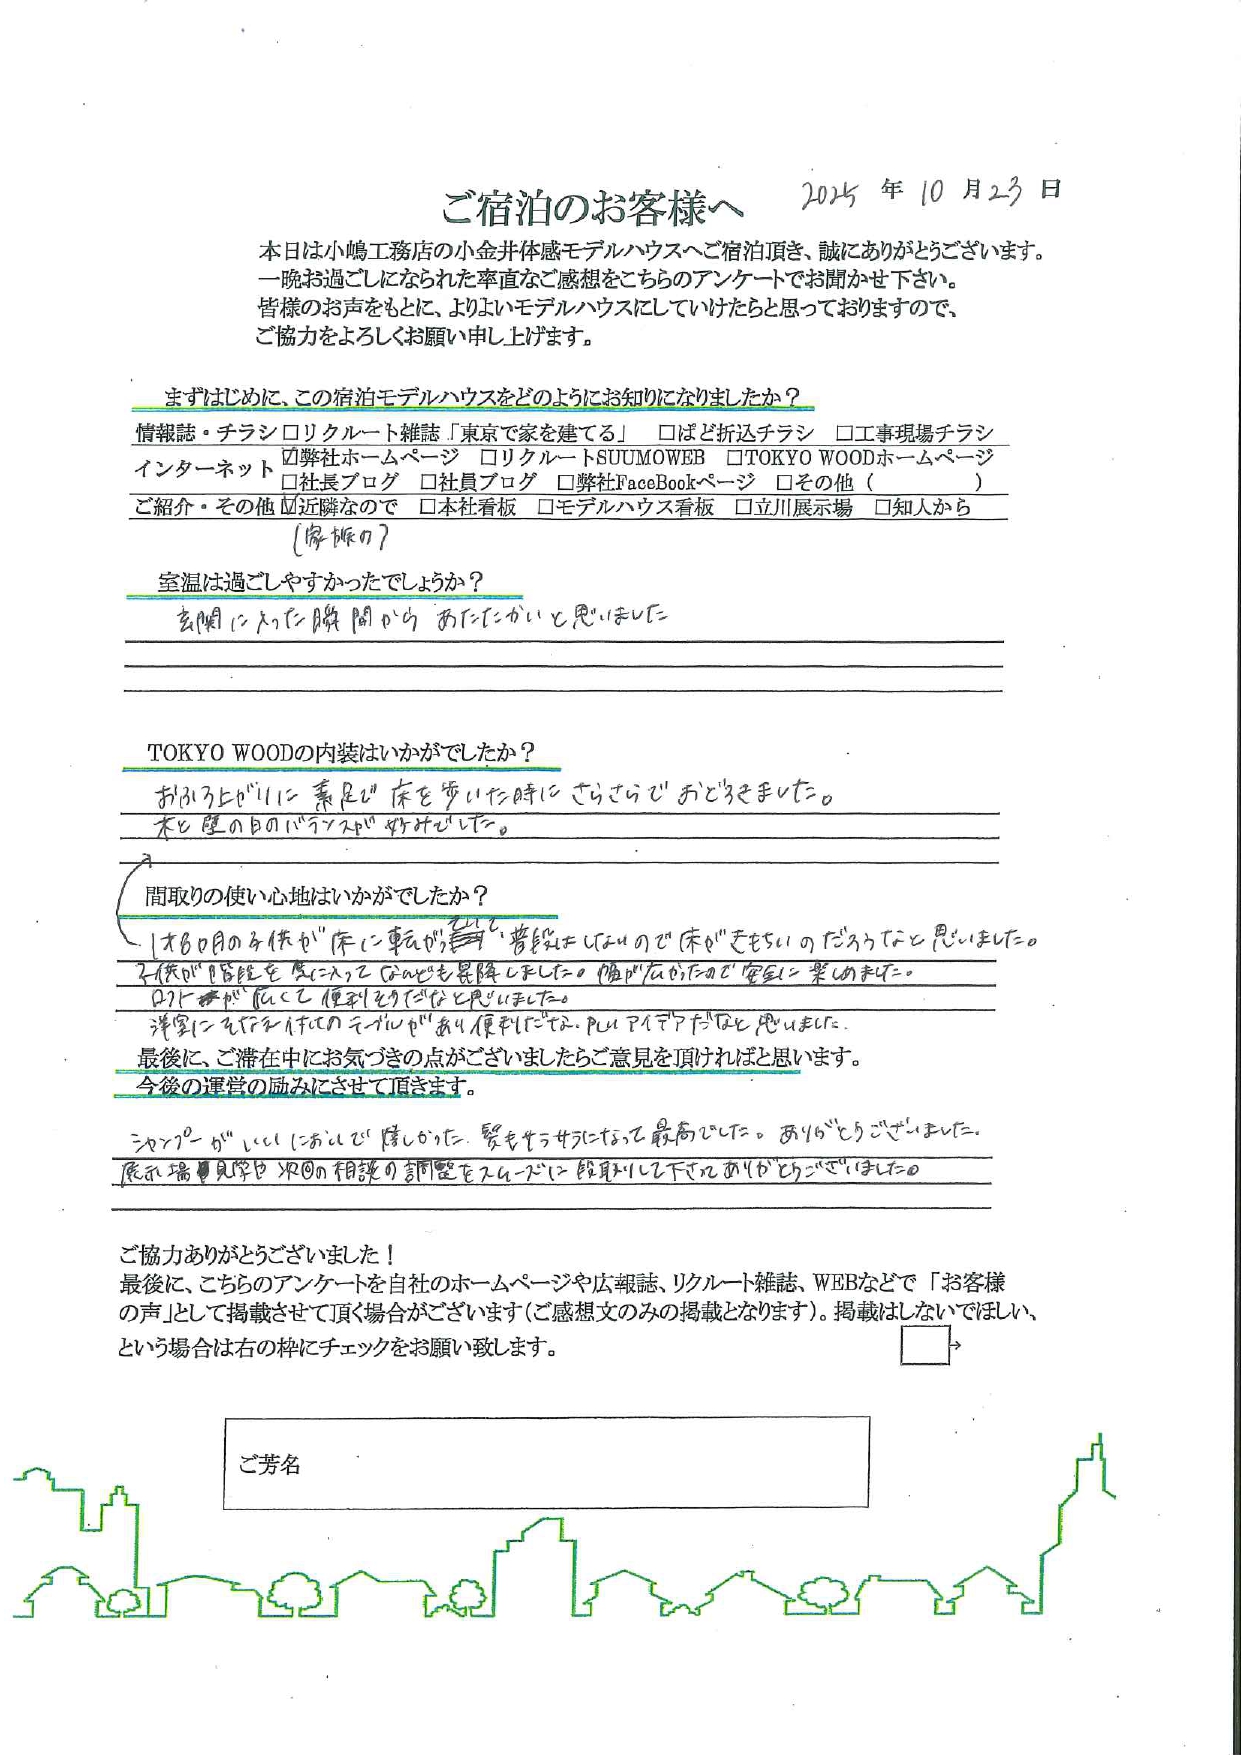 2025年10月23日
ご宿泊のお客様へ
本日は小嶋工務店の小金井体感モデルハウスへご宿泊頂き、誠にありがとうございます。
一晩お過ごしになられた率直なご感想をこちらのアンケートでお聞かせ下さい。
皆様のお声をもとに、よりよいモデルハウスにしていけたらと思っておりますので、
ご協力をよろしくお願い申し上げます。
まずはじめに、この宿泊モデルハウスをどのようにお知りになりましたか？
情報誌・チラシ □リクルート雑誌「東京で家を建てる」 □ぱど折込チラシ □工事現場チラシ
インターネット ☑弊社ホームページ □リクルートSUUMOWEB □TOKYO WOODホームページ
□社長ブログ □社員ブログ □弊社FaceBookページ □その他（ ）
ご紹介・その他 ☑近隣なので □本社看板 □モデルハウス看板 □立川展示場 □知人から
(家族の)
室温は過ごしやすかったでしょうか？
玄関に入った瞬間から あたたかいと思いました
TOKYO WOODの内装はいかがでしたか？
おふろ上がりに 素足で 床を歩いた時に さらさらで おどろきました。
木と壁の白のバランスが 好みでした。
間取りの使い心地はいかがでしたか？
1才6ヶ月の子供が 床に転がっていて、普段はしないので床がきもちいのだろうなと思いました。
子供が階段を気に入って なんども昇降しました。幅が広かったので安全に楽しめました。
ロフトが広くて便利そうだなと思いました。
洋室にそなえ付けのテーブルがあり便利だな、アイデアだなと思いました。
最後に、ご滞在中にお気づきの点がございましたらご意見を頂ければと思います。
今後の運営の励みにさせて頂きます。
シャンプーが いいにおいで 嬉しかった 髪もサラサラになって最高でした。ありがとうございました。
展示場見学や 次回の相談の調整をスムーズに段取りして下さって ありがとうございました。
ご協力ありがとうございました！
最後に、こちらのアンケートを自社のホームページや広報誌、リクルート雑誌、WEBなどで「お客様
の声」として掲載させて頂く場合がございます（ご感想文のみの掲載となります）。掲載はしないでほしい、
という場合は右の枠にチェックをお願い致します。 □→
ご芳名